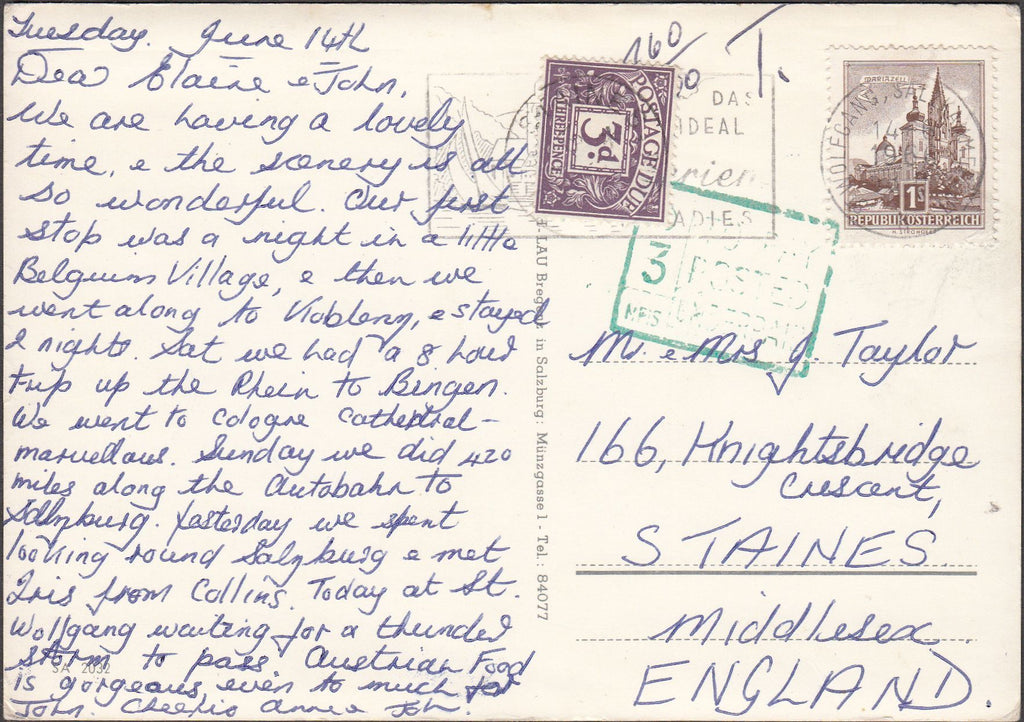 Tuesday. June 14th
Dear Elaine & John,
We are having a lovely
time, & the scenery is all
so wonderful. Our first
stop was a night in a little
Belguim Village, & then we
went along to Koblenz, & stayed
2 nights. Sat we had a 8 hour
trip up the Rhein to Bingen.
We went to Cologne Cathedral -
marvellous. Sunday we did 420
miles along the Autobahn to
Salzburg. Yesterday we spent
looking round Salzburg & met
Iris from Collins. Today at St.
Wolfgang waiting for a thunder
storm to pass. Austrian Food
is gorgeous, even to much for
John. Cheerio Ann & John.
SA 2032
LAU Bregenz in Salzburg: Münzgasse 1 - Tel.: 84077
160
T.
POSTAGE DUE
3d.
THREE PENCE
DAS
IDEAL
erien
ADIES
MARIAZELL
1S
REPUBLIK ÖSTERREICH
WOLFGANG
3
POSTED
Mr. & Mrs J. Taylor
166, Knightsbridge
Crescent,
STAINES.
Middlesex.
ENGLAND.